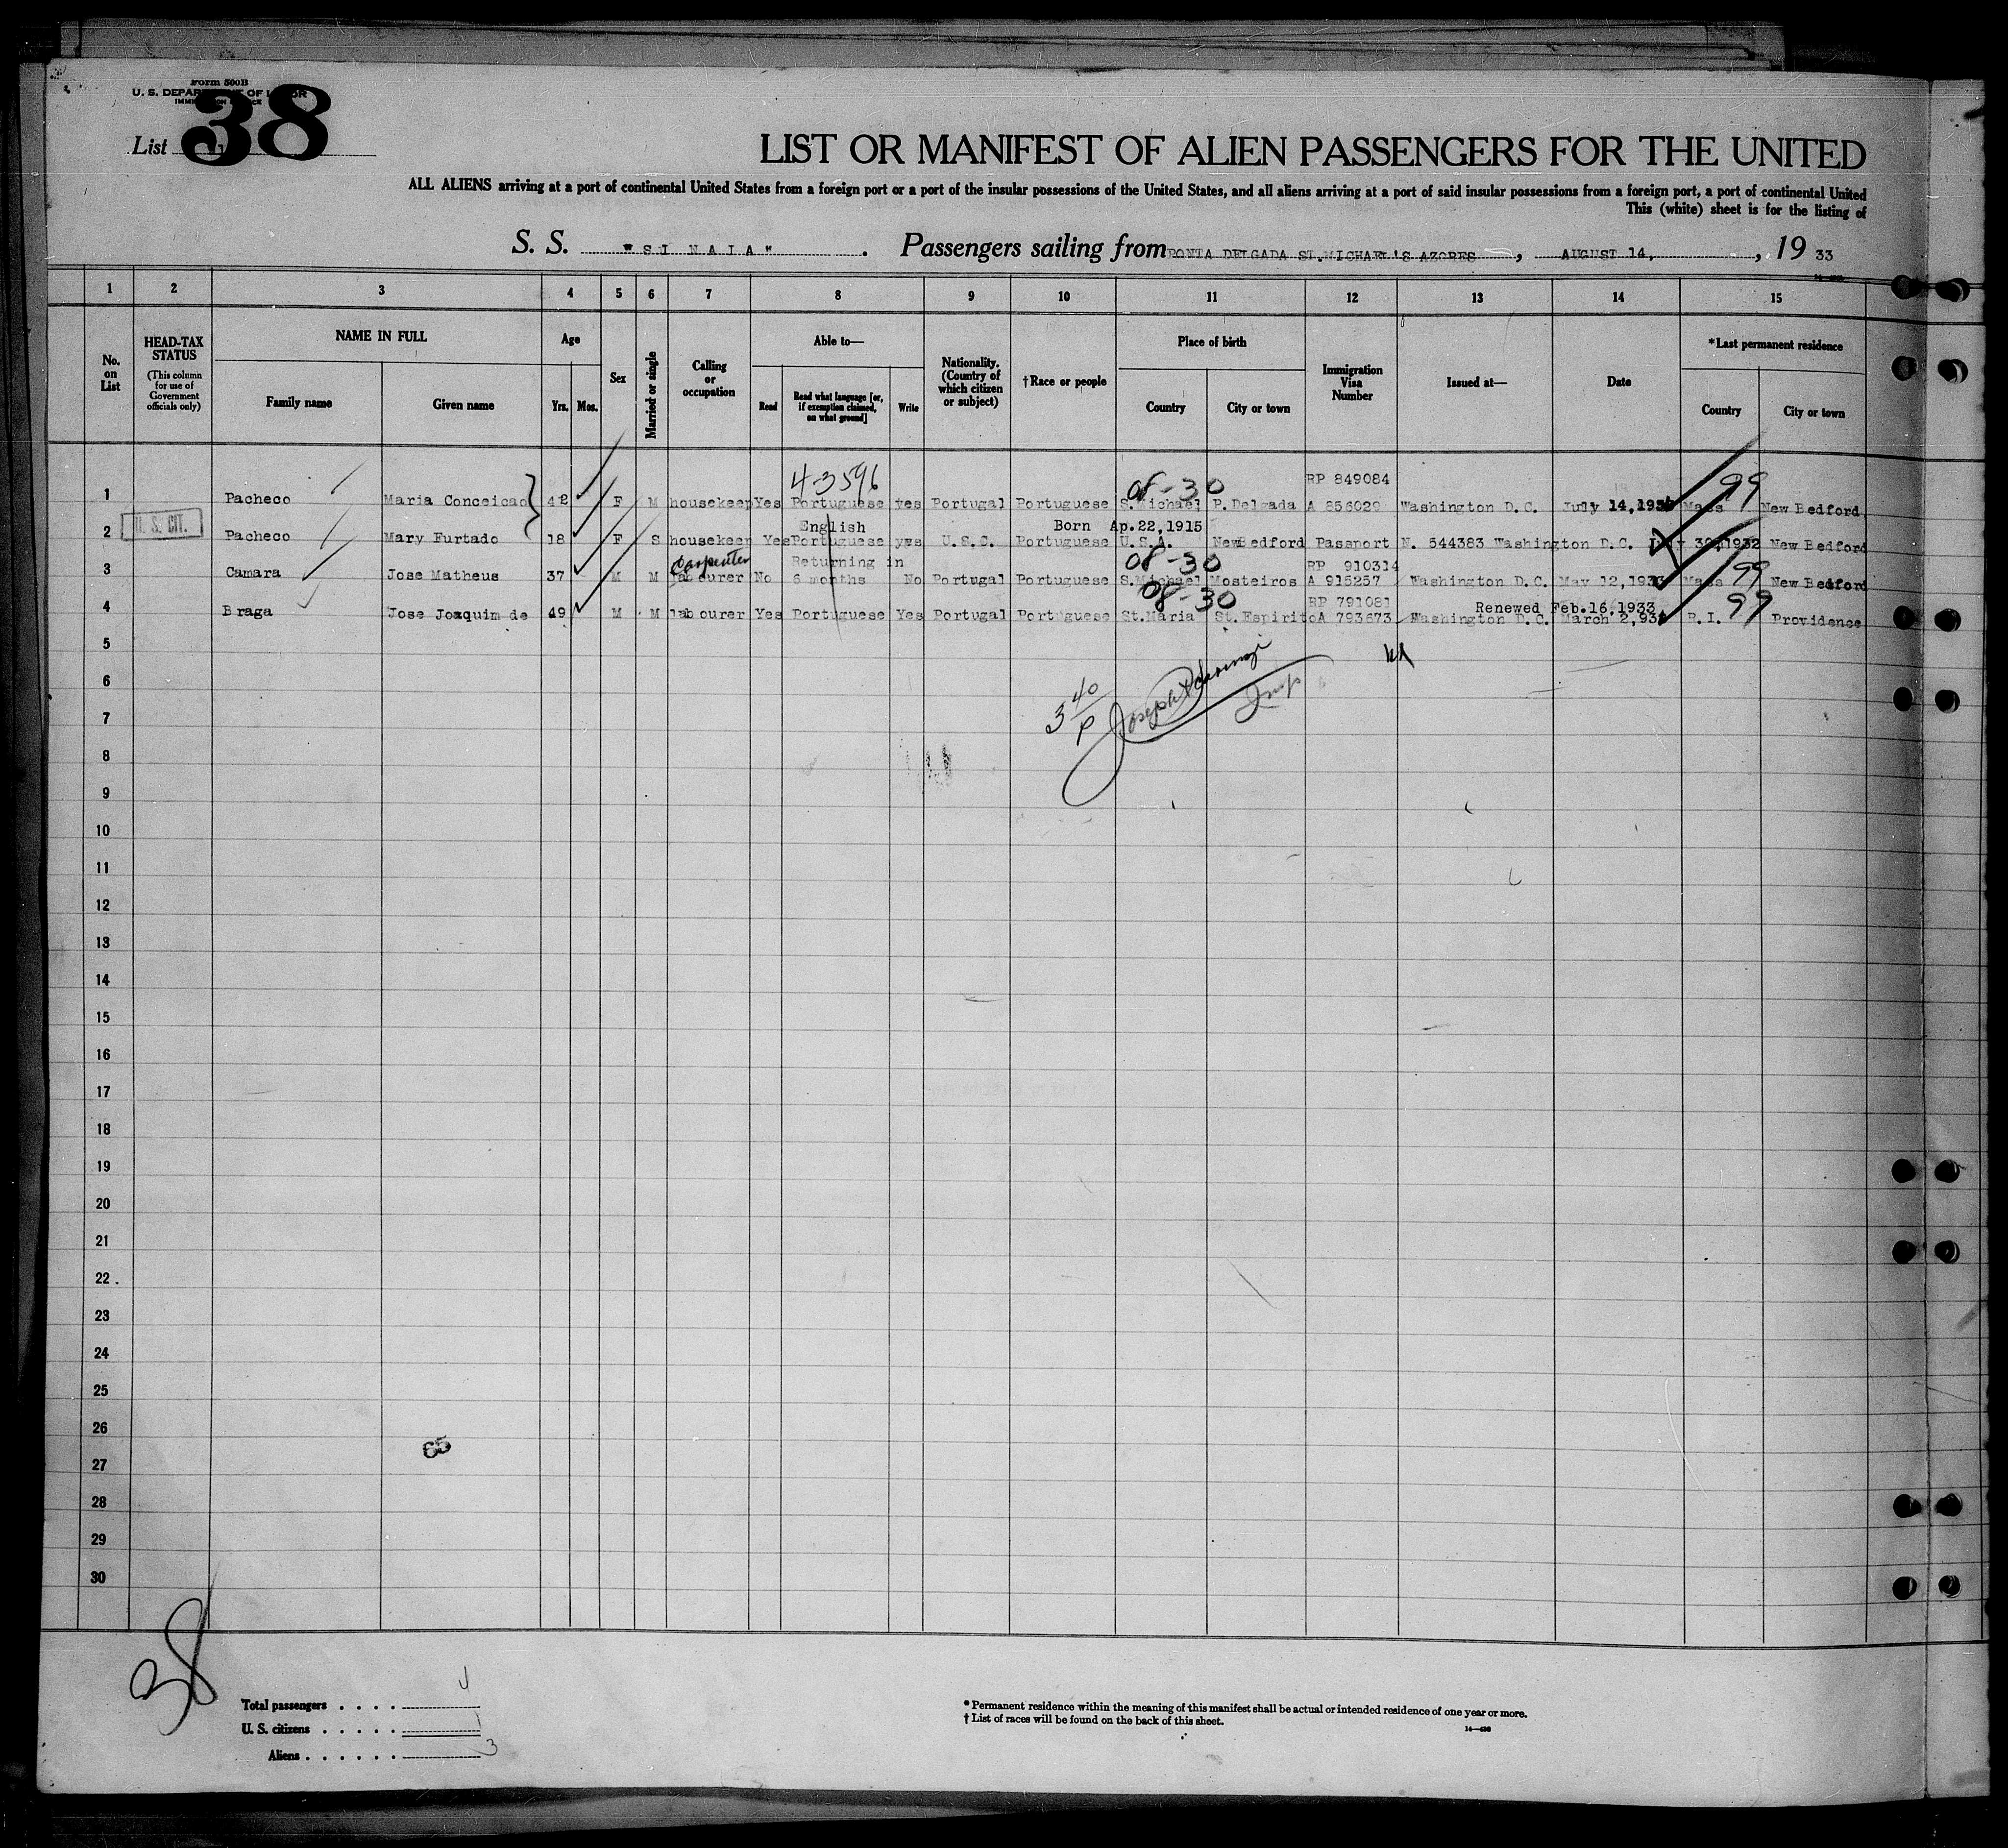 Form 500B
U. S. DEPARTMENT OF LABOR
38
List
LIST OR MANIFEST OF ALIEN PASSENGERS FOR THE UNITED
ALL ALIENS arriving at a port of continental United States from a foreign port or a port of the insular possessions of the United States, and all aliens arriving at a port of said insular possessions from a foreign port, a port of continental United
This (white) sheet is for the listing of
S. S. "SINAIA". Passengers sailing from PONTA DELGADA ST.MICHAEL'S AZORES, AUGUST 14, , 19 33
1 2 3 4 5 6 7 8 9 10 11 12 13 14 15
No. on List
HEAD-TAX STATUS (This column for use of Government officials only)
NAME IN FULL
Family name Given name
Age
Yrs. Mos.
Sex
Married or single
Calling or occupation
Able to—
Read Read what language [or, if exemption claimed, on what ground] Write
Nationality. (Country of which citizen or subject)
†Race or people
Place of birth
Country City or town
Immigration Visa Number
Issued at—
Date
*Last permanent residence
Country City or town
4-3596 08-30 RP 849084 99
1 Pacheco Maria Conceicao 42 F M housekeep Yes Portuguese yes Portugal Portuguese S.Michael P.Delgada A 856029 Washington D.C. July 14, Mass New Bedford
U. S. CIT. English Born Ap.22,1915
2 Pacheco Mary Furtado 18 F S housekeep Yes Portuguese yes U.S.C. Portuguese U.S.A. New Bedford Passport N. 544383 Washington D.C. July 30,1932 New Bedford
Carpenter Returning in 08-30 RP 910314 99
3 Camara Jose Matheus 37 M M labourer No 6 months No Portugal Portuguese S.Michael Mosteiros A 915257 Washington D.C. May 12,1933 Mass New Bedford
08-30 RP 791081 Renewed Feb.16,1933 99
4 Braga Jose Joaquim de 49 M M labourer Yes Portuguese Yes Portugal Portuguese St.Maria St.Espirito A 793673 Washington D.C. March 2, R.I. Providence
5
6
3 40/P Joseph Insp
7
8
9
10
11
12
13
14
15
16
17
18
19
20
21
22
23
24
25
26
65
27
28
29
30
38
Total passengers . . . .
U. S. citizens . . . . . 1
Aliens . . . . . . 3
* Permanent residence within the meaning of this manifest shall be actual or intended residence of one year or more.
† List of races will be found on the back of this sheet.